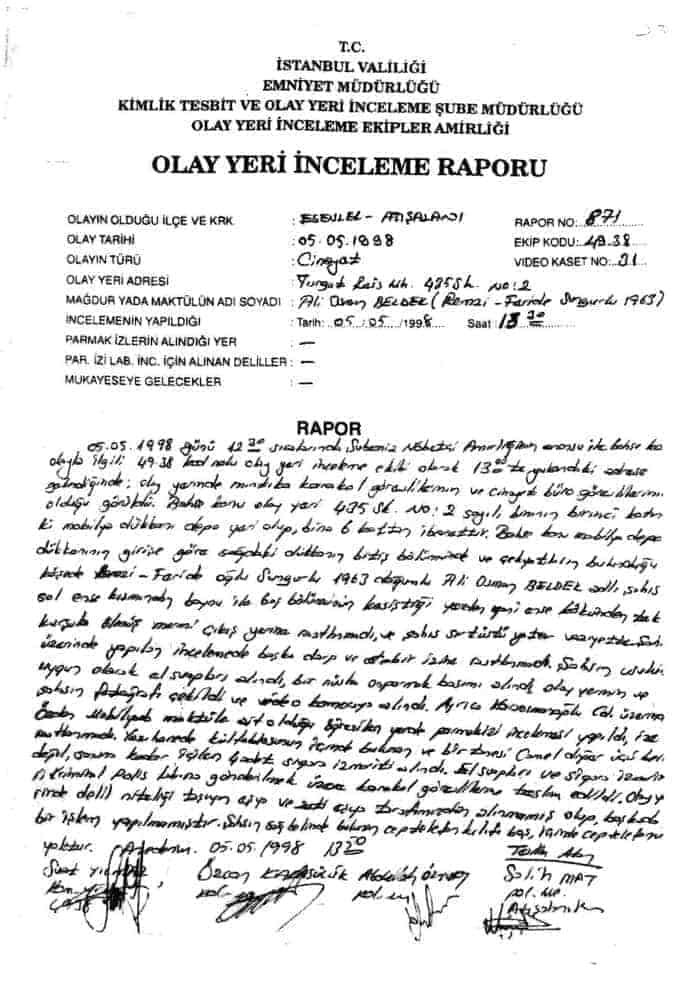 T.C.
İSTANBUL VALİLİĞİ
EMNİYET MÜDÜRLÜĞÜ
KİMLİK TESBİT VE OLAY YERİ İNCELEME ŞUBE MÜDÜRLÜĞÜ
OLAY YERİ İNCELEME EKİPLER AMİRLİĞİ
OLAY YERİ İNCELEME RAPORU
OLAYIN OLDUĞU İLÇE VE KRK. : ESENLER - ATIŞALANI RAPOR NO: 871
OLAY TARİHİ : 05.05.1998 EKİP KODU: 49.38
OLAYIN TÜRÜ : Cinayat VIDEO KASET NO: 31
OLAY YERİ ADRESİ : Turgut Reis Mh. 435 Sk. NO: 2
MAĞDUR YADA MAKTÜLÜN ADI SOYADI : Ali Osman BELDEK (Remzi - Feride Sungurlu 1963)
İNCELEMENİN YAPILDIĞI : Tarih: 05 / 05 /1998 Saat : 13
PARMAK İZLERİN ALINDIĞI YER : —
PAR. İZİ LAB. İNC. İÇİN ALINAN DELİLLER : —
MUKAYESEYE GELECEKLER : —
RAPOR
05.05.1998 günü 12 30 sıralarında Şubemiz Nöbetçi Amirliğinin anonsu ile bahse ko
olayla ilgili 49.38 kod nolu olay yeri inceleme ekibi olarak 13 de yukarıdaki adrese
gelindiğinde; olay yerinde mıntıka karakol görevlilerinin ve cinayet büro görevlilerinin
olduğu görüldü. Bahse konu olay yeri 435 Sk. NO: 2 sayılı, binanın birinci katın
ki mobilya dükkanı depo yeri olup, bina 6 kattan ibarettir. Bahse konu mobilya depo
dükkanının girişe göre sağdaki dükkanın bitiş bölümünde ve çekyatların bulunduğu
köşede Remzi - Feride oğlu Sungurlu 1963 doğumlu Ali Osman BELDEK adlı şahıs
sol ense kısmından boyun ile baş bölümünün kesiştiği yerden yani ense kökünden tek
kurşunla ölmüş mermi çıkış yerine rastlanmadı, ve şahıs sırtüstü yatar vaziyette
üzerinde yapılan incelemede başka darp ve izine rastlanmadı. Şahsın usulüne
uygun olarak el svapları alındı, bir nüsha onparmak basımı alındı olay yerinin ve
şahsın fotoğrafı çekildi ve video kamerası alındı. Ayrıca Cd. üzerine
Mobilyada maktüle ait olduğu öğrenilen yerde parmakizi incelemesi yapıldı, ize
rastlanmadı. Yazıhanede kültablasının içinde bulunan ve bir tanesi Camel diğer üçü belli
değil, içilen 4 adet sigara izmariti alındı. El svapları ve sigara izmarit
Kriminal Polis Lab.ına gönderilmek üzere karakol görevlilerine teslim edildi. Olay y
rinde delil niteliği taşıyan eşya ve zati eşya tarafımızdan alınmamış olup, başkada
bir işlem yapılmamıştır. Şahsın sağ belinde bulunan cep telefon kılıfı boş, cep telefonu
yoktur. 05.05.1998 13
Özcan Abdullah
Salih MAT